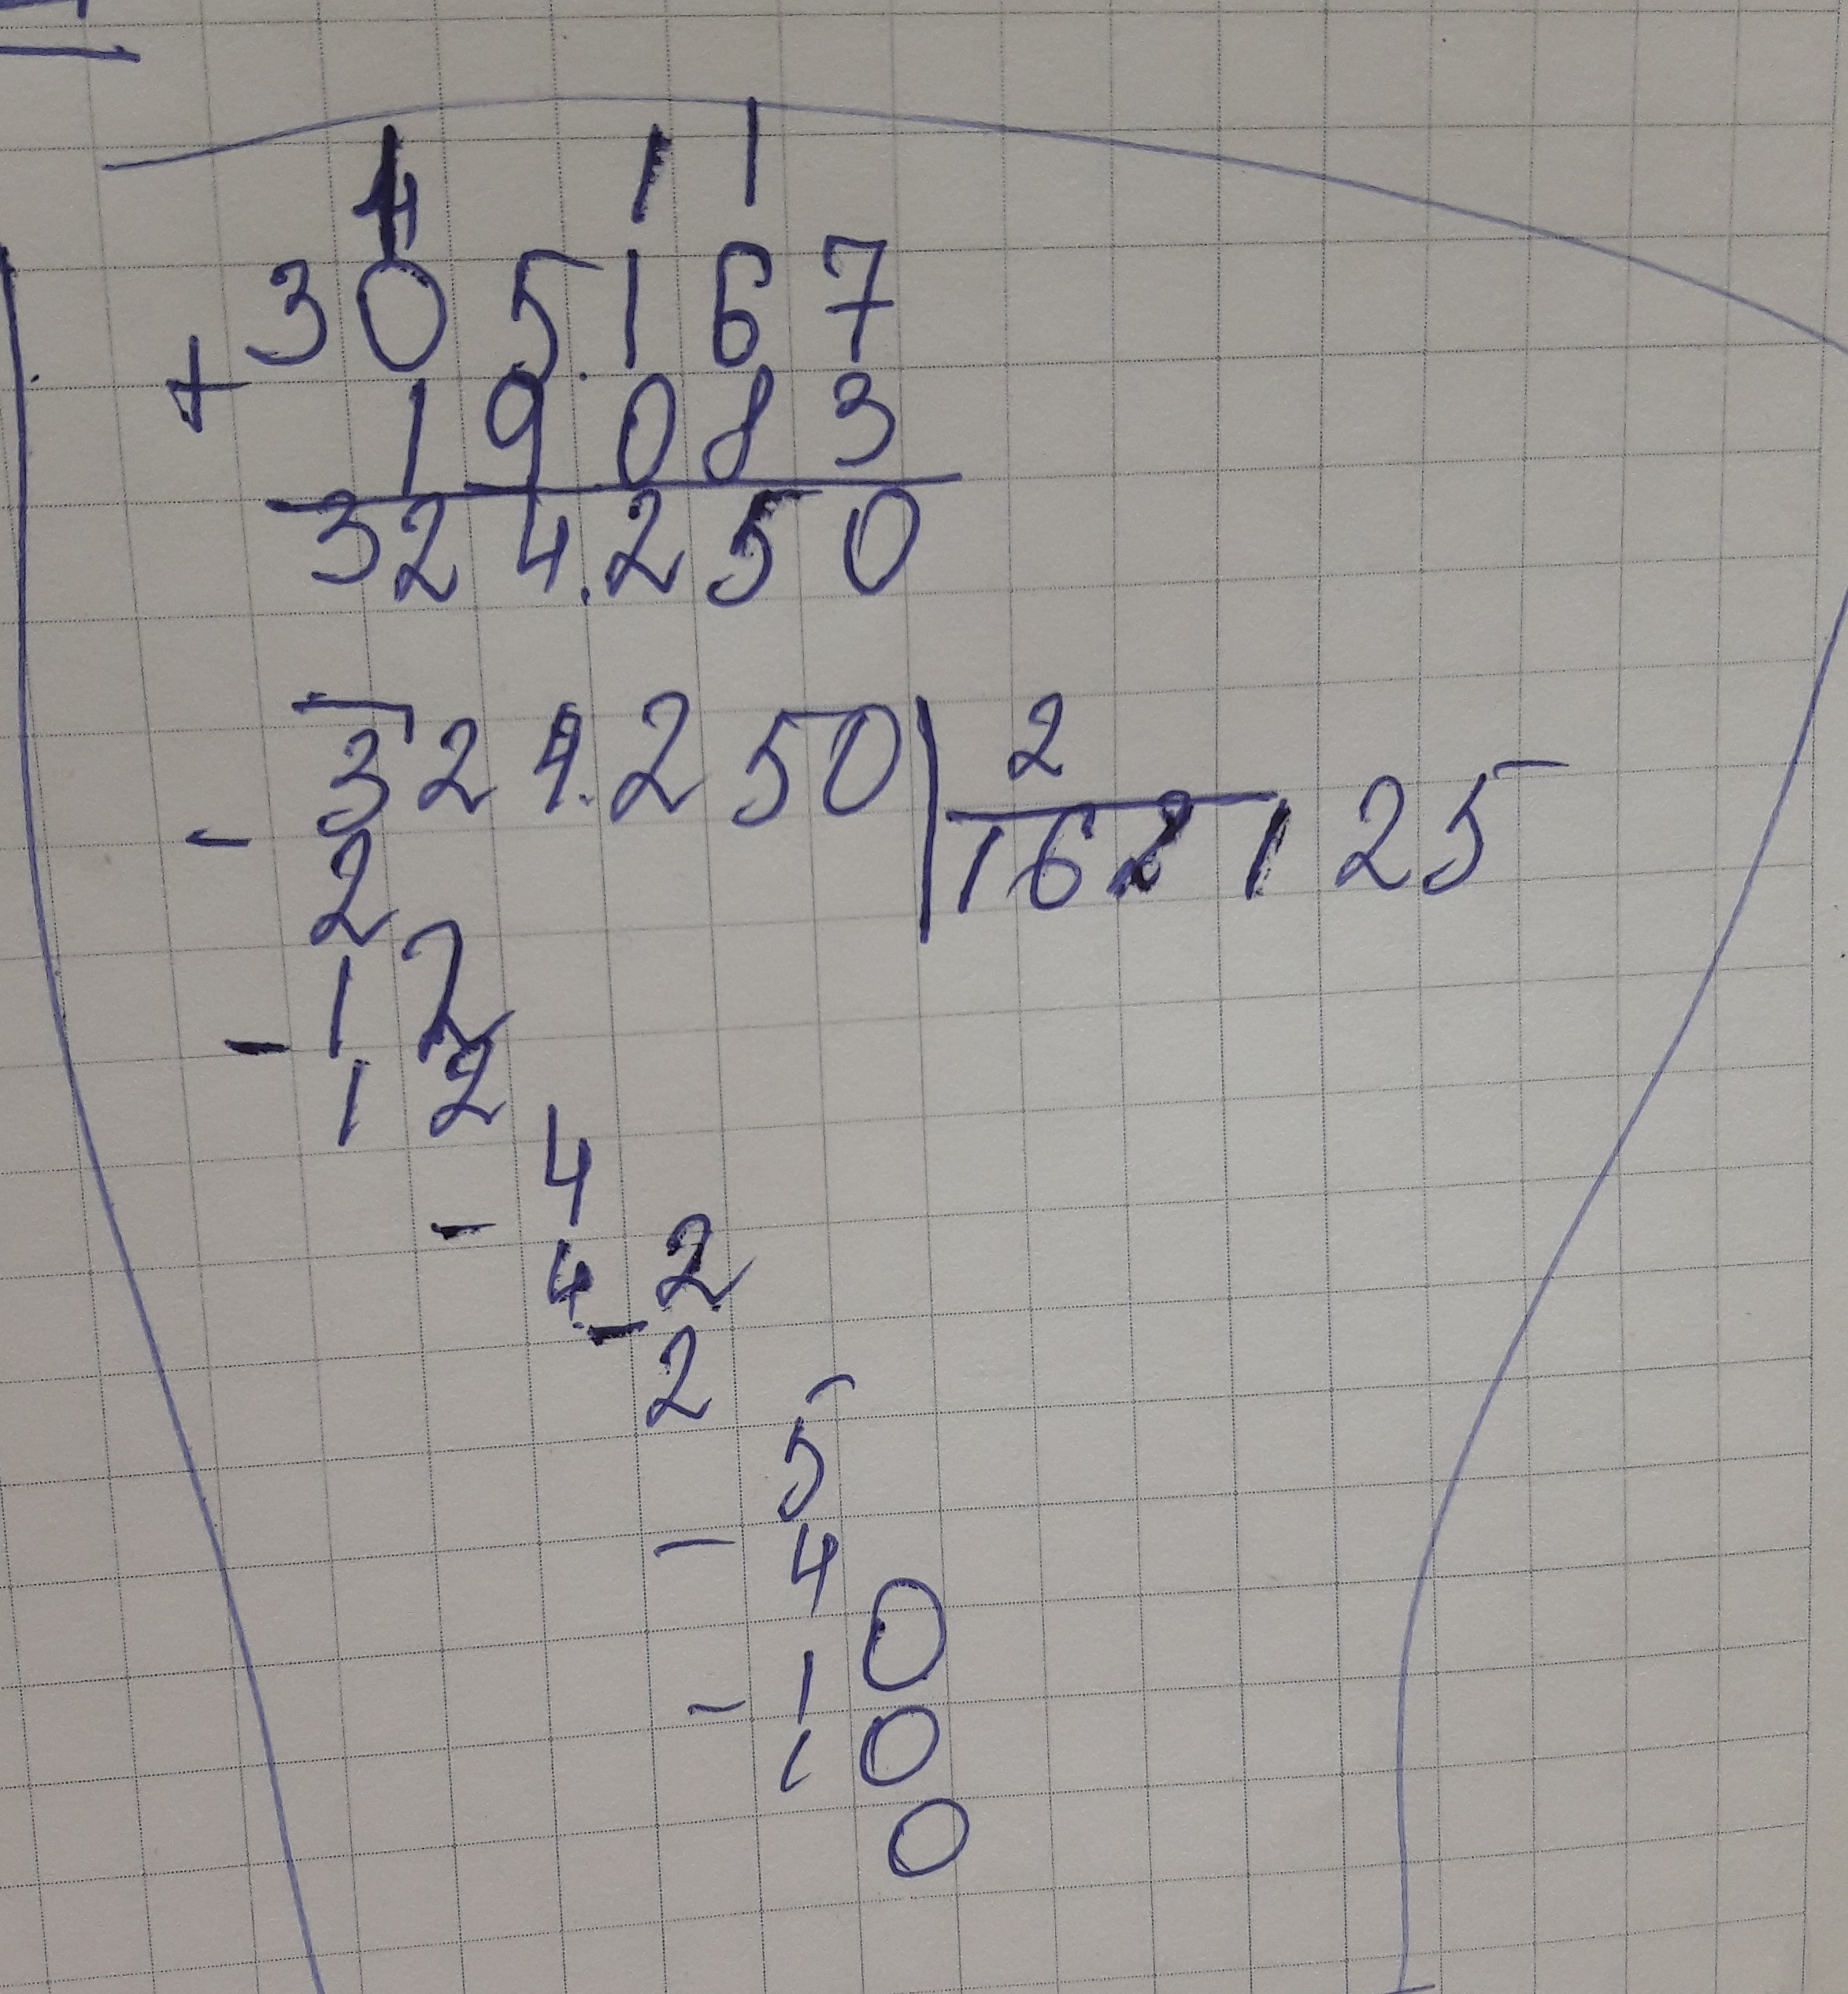 1 1 1
305.167
+
19.083
324.250
324.250 | 2
- 2
162125
12
- 12
4
- 4
2
- 2
5
- 4
10
- 10
0